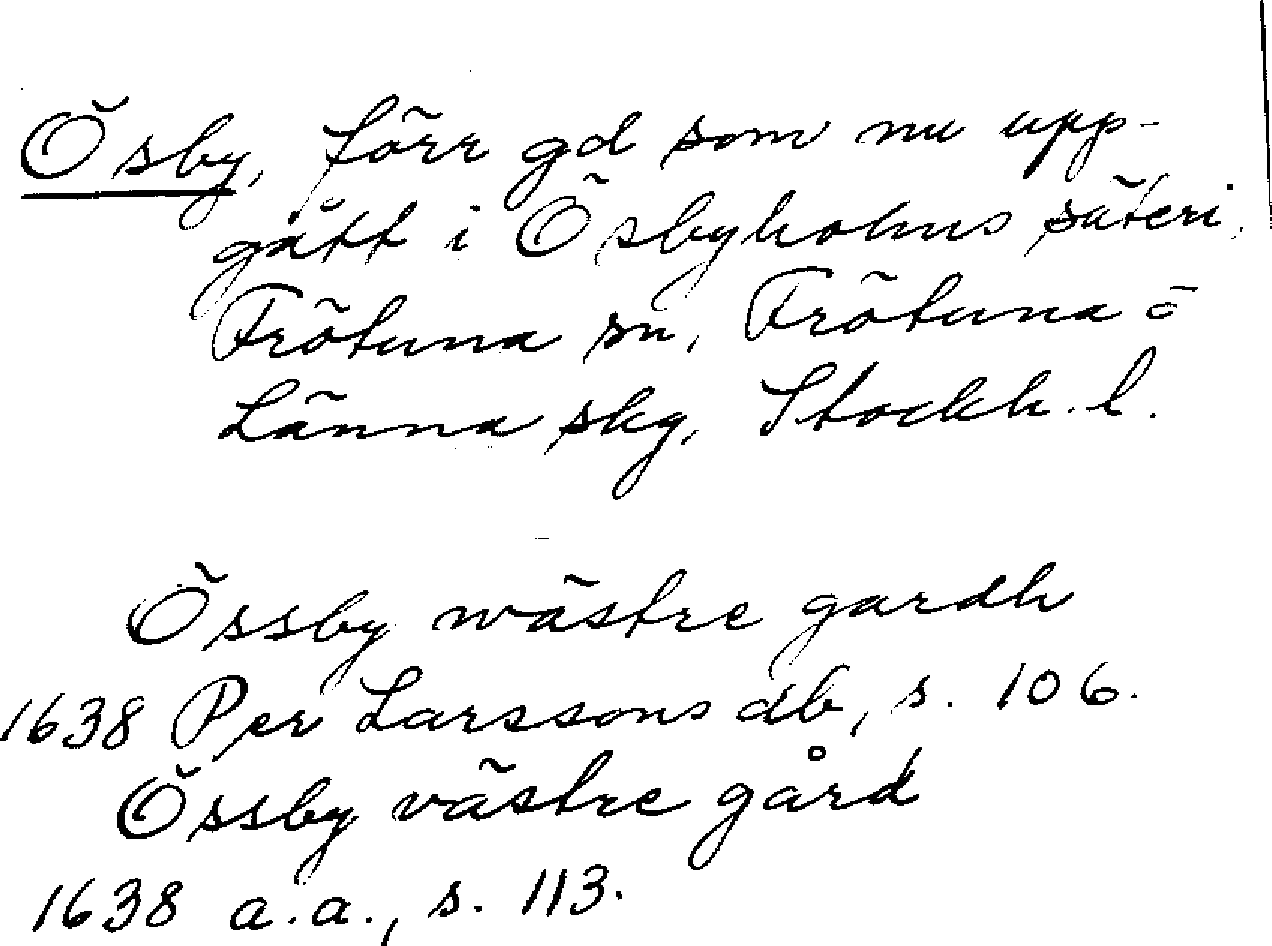 Ösby, förr gd som nu upp-
gått i Ösbyholms säteri,
Frötuna sn, Frötuna o
Länna skg, Stockh. l.
Össby wästre gardh
1638 Per Larssons db, s. 106.
Össby västre gård
1638 a.a., s. 113.